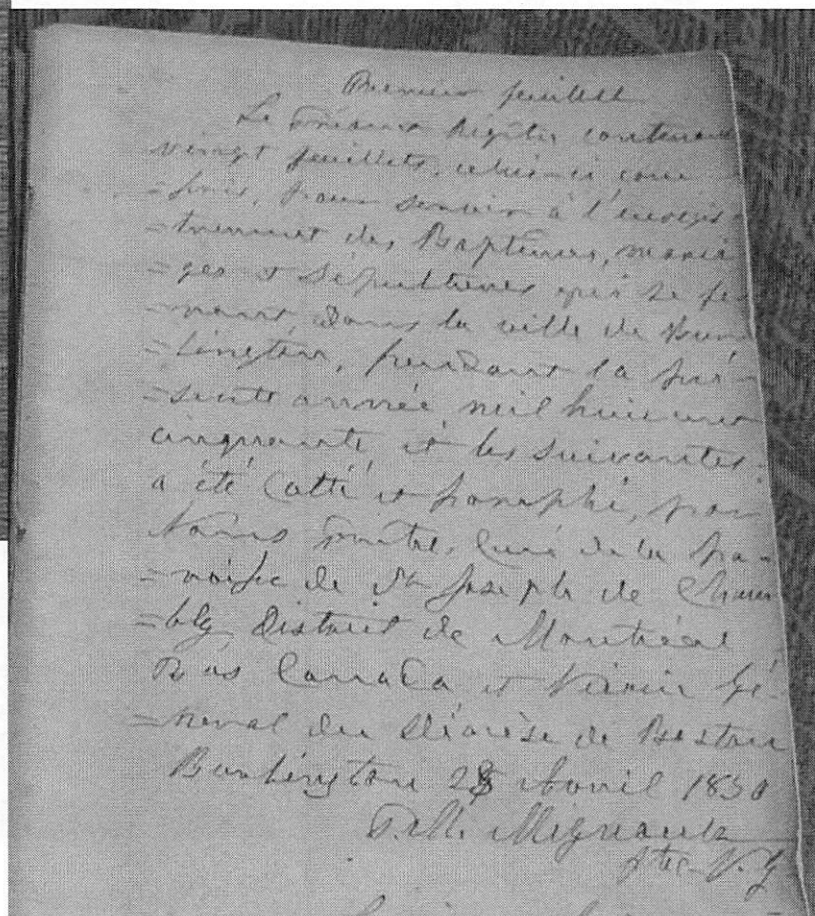 Premier feuillet
Le présent Régitre contenant
vingt feuillets, celui-ci com
=pris, pour servir à l'enregis
=trement des Baptêmes, maria
=ges et Sépultures qui se fe
=ront dans la ville de Bur
=lington, pendant la pré
=sente année mil huit cent
cinquante, et les suivantes
a été Cotté et paraphé, par
Nous Prêtre, Curé de la Pa-
=roisse de St Joseph de Cham
=bly District de Montréal
Bas Canada et Vicaire Gé
=néral du Diocèse de Boston
Burlington 28 Avril 1850
P. M. Mignault
Ptre V. G